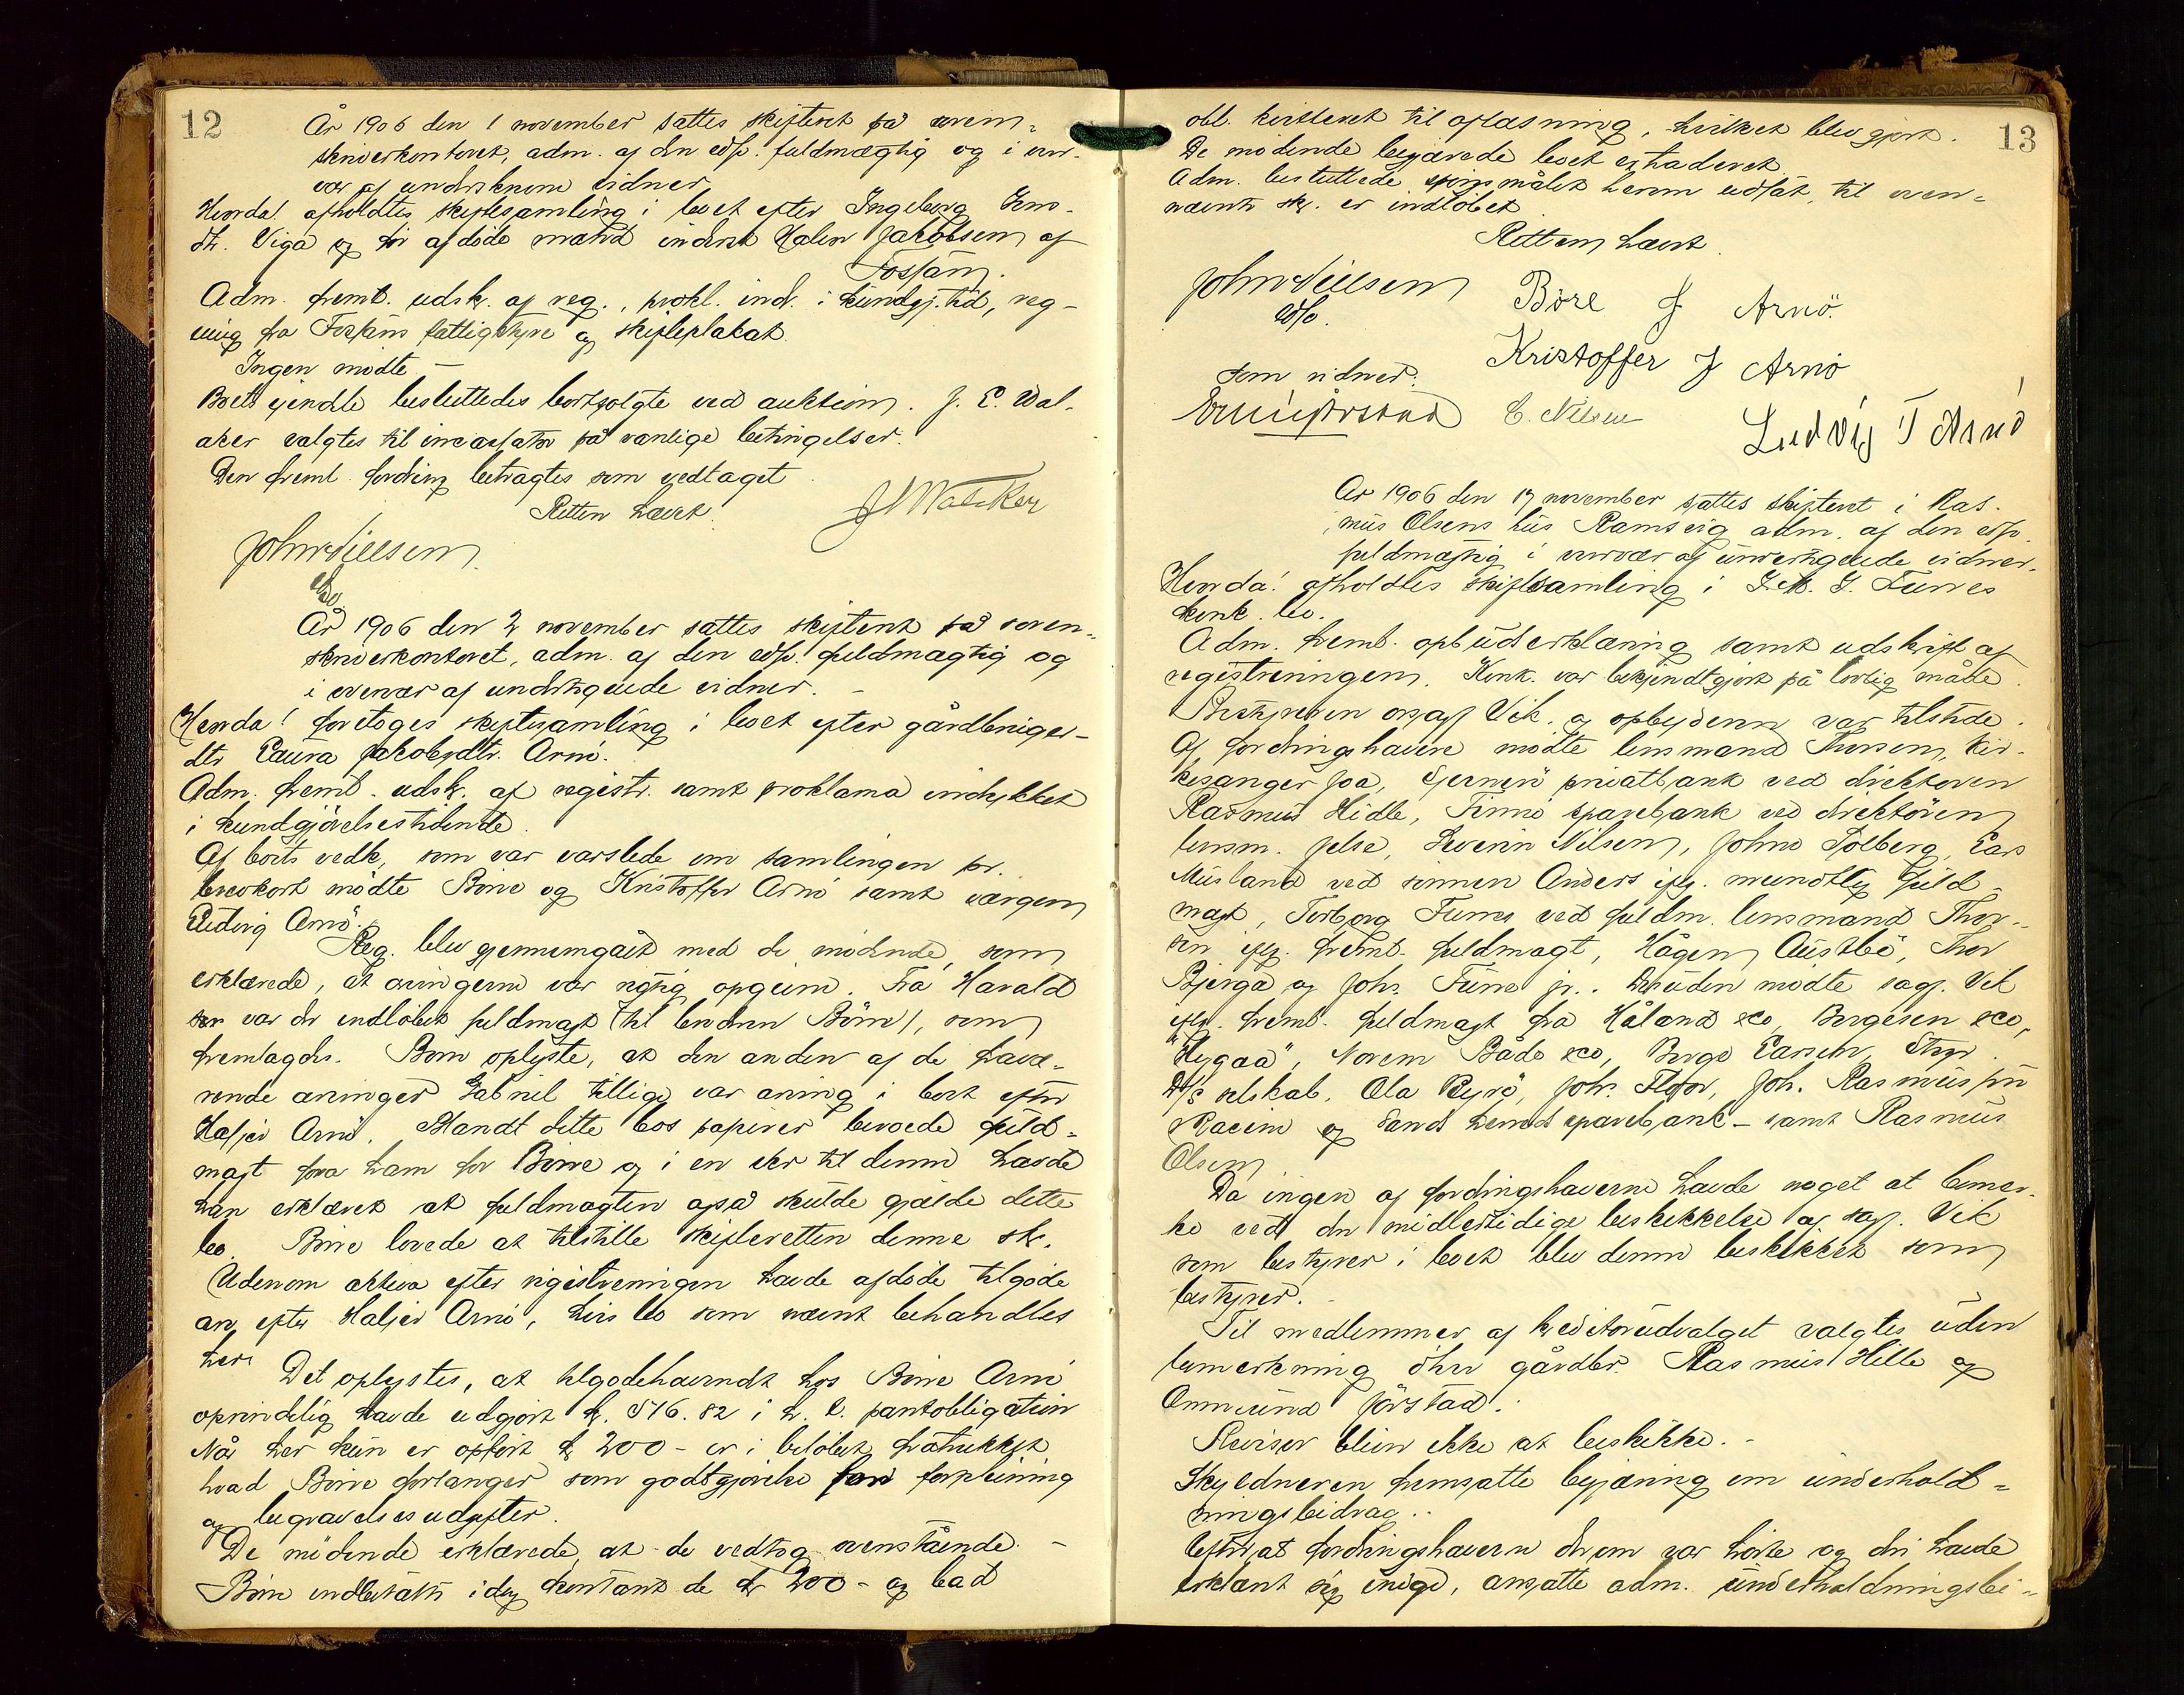 12
År 1906 den 1 november sattes skifteret på soren-
skriverkontoret, adm. af den edsv. fuldmægtig og i over-
vær af underskrevne vidner
Hvorda! afholdtes skiftesamling i boet efter Ingeborg
dtr. Viga og før afdöde mand inderst Malen Jakobsen af
Fosfam.
Adm. freml. udsk. af reg., prokl. ind. i kundgj. tid, reg-
ning fra fattigstyre og skifteplakat.
Ingen mödte. –
Boets eiendele besluttedes bortsolgte ved auktion. J. E. Wal-
aker valgtes til incassator på vanlige betingelser.
Den freml. fordring betragtes som vedtaget
Retten hævet.
John Nielsen
edsv.
År 1906 den 2 november sattes skifteret på soren-
skriverkontoret, adm. af den edsv. fuldmægtig og
i overvær af undertegnede vidner. –
Hvorda! foretoges skiftesamling i boet efter gårdbruger-
dtr Laura Jakobsdtr. Arnö.
Adm. freml. udsk. af registr. samt proklama indrykket
i kundgjörelsestidende.
Af boets vedk, som var varslede om samlingen pr.
brevkort mödte Börre og Kristoffer Arnö samt værgen
Ludvig Arnö.
Reg. blev gjennemgået med de mödende, som
erklærede, at arvingerne var rigtig opgivne. Fra Harald
var der indlöbet fuldmagt (til broderen Börre), som
fremlagdes. Börre oplyste, at den anden af de fravæ-
rende arvinger Gabriel tillige var arving i boet efter
Arnö. Blandt dette bos papirer beroede fuld-
magt fra ham for Börre og i en skr til denne havde
han erklæret at fuldmagten også skulde gjælde dette
bo. Börre lovede at tilstille skifteretten denne skr.
Udenom aktiva efter registreringen havde afdöde tilgode
arv efter Arnö, hvis bo som nævnt behandles
her.
Det oplystes, at tilgodehavendet hos Börre Arnö
oprindelig havde udgjort kr. 546.82 i h. t. pantobligation
Når her kun er opfört kr 200 – er i belöbet fratrukket
hvad Börre forlanger som godtgjörelse for forpleining
og begravelsesudgifter.
De mödende erklærede, at de vedtog ovenstående. –
Börre indbetalte idag kontant de kr 200 – og bad
13
obl. kvitteret til aflæsning, hvilket blev gjort.
De mödende begjærede boet extraderet
Adm. besluttede spörsmålet herom udsat, til oven-
nævnte skr. er indlöbet
Retten hævet.
John Nielsen
edsv.
Böre J Arnö.
Kristoffer J Arnö
som vidner:
C. Nilsen
Ludvig T Arnö
År 1906 den 17 november sattes skifteret i Ras-
mus Olsens hus Ramsvig adm. af den edsv.
fuldmægtig i overvær af undertegnede vidner.
Hvorda! afholdtes skiftesamling i J. Furres
konk. bo.
Adm. freml. opbudserklæring samt udskrift af
registreringen. Konk. var bekjendtgjort på lovlig måde.
Bestyreren orsagf Vik. og opbyderen var tilstede.
Af fordringshavere mödte lensmand Thorsen, kir-
kesanger Joa, privatbank ved direktören
Rasmus Hidle, Finnö sparebank ved direktören
lensm. Jelse, Severin Nilsen, Johns Solberg, Lars
Musland ved sönnen Anders iflg. mundtlig fuld-
magt, Torborg Furre ved fuldm. lensmand Thor-
sen iflg. freml. fuldmagt, Hågen Austbö, Thor
Bjerga og Johs. Furre jr. Desuden mödte sagf. Vik
iflg. freml. fuldmagt fra Håland & co, Bergesen & co,
"Hygaa", Norem Både & co, Berge Larsen,
D/S selskab, Ola Røyrö, Johs. Fløor, Joh. Rasmussen
og Sands sparebank – samt Rasmus
Olsen
Da ingen af fordringshaverne havde noget at bemær-
ke ved den midlertidige beskikkelse af sagf. Vik
som bestyrer i boet blev denne beskikket som
bestyrer. –
Til medlemmer af kreditorudvalget valgtes uden
bemerkning öhrv gårdbr. Rasmus Hille og
Ommund Jörstad.
Revisor blev ikke at beskikke. –
Skyldneren fremsatte begjæring om underhold-
ningsbidrag..
Efterat fordringshaverne derom var hörte og de havde
erklært sig enige, ansatte adm. underholdningsbi-